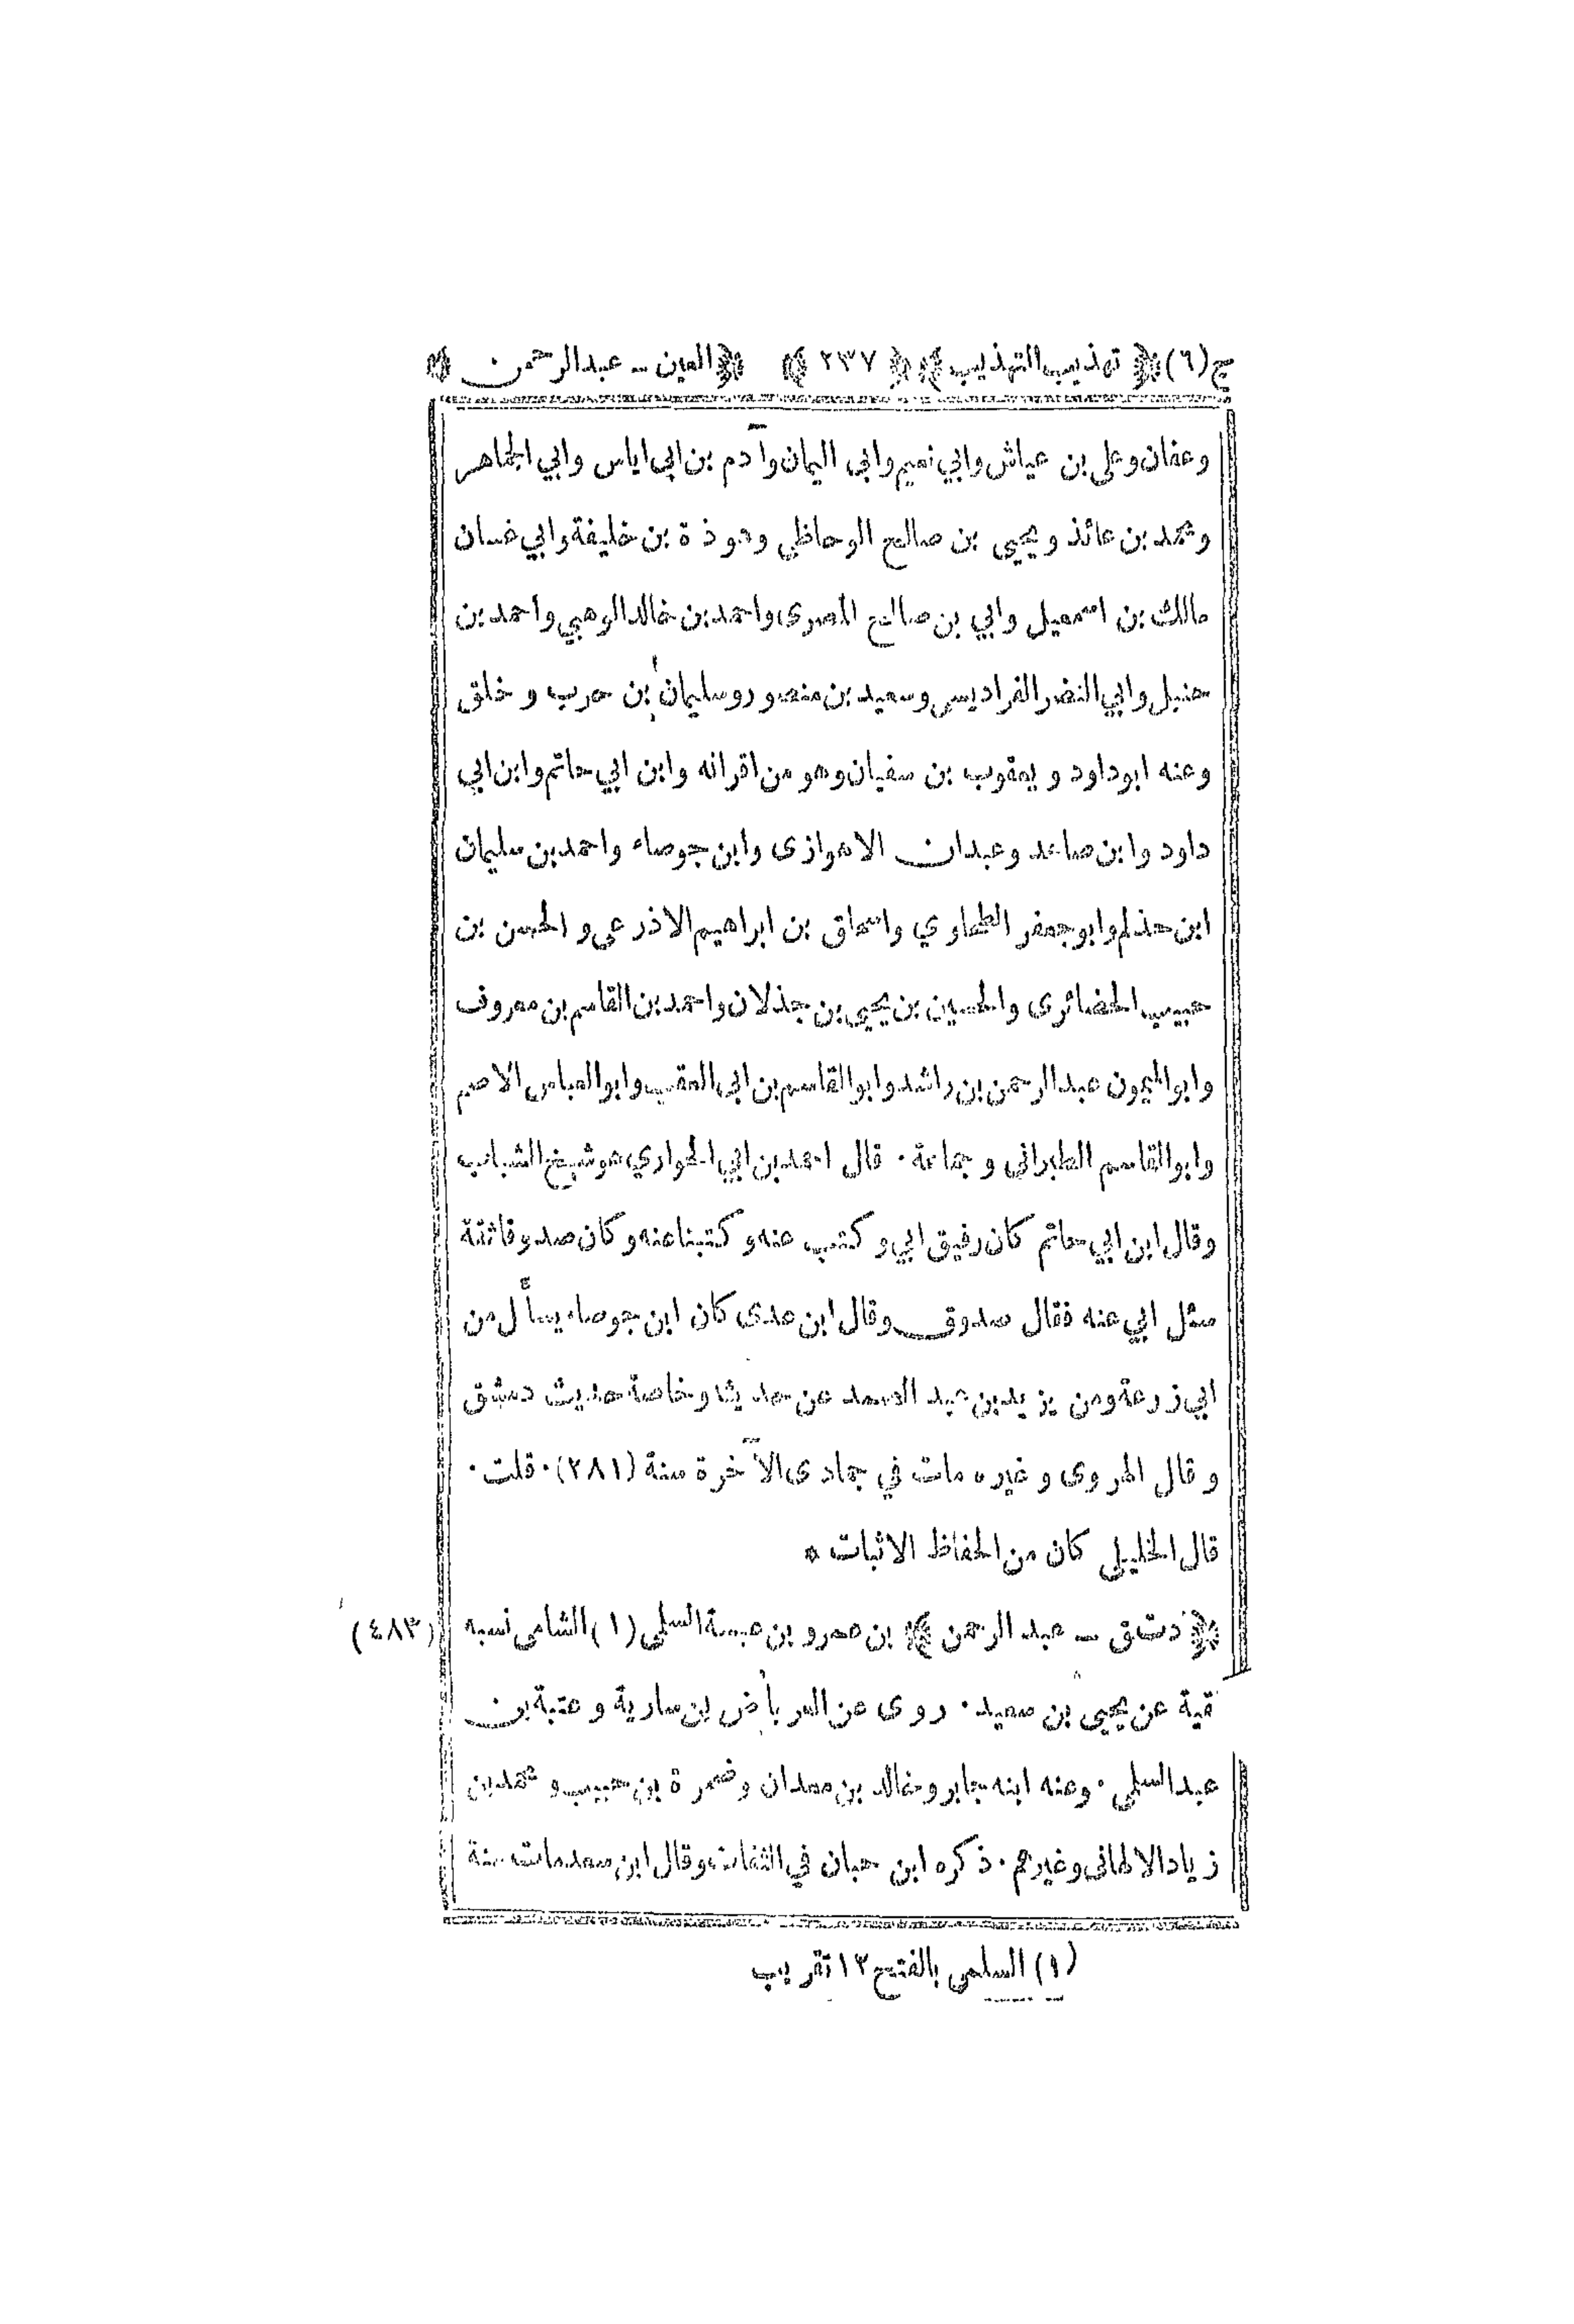 ج(٦) ﴿ تهذيب التهذيب ﴾ ﴿ ٢٣٧ ﴾ ﴿ العين - عبد الرحمن ﴾
وعفان وعلى بن عياش وابي نعيم وابى اليمان وآدم بن ابى اياس وابي الجماهر
ومحمد بن عائذ و يحيى بن صالح الوحاظي وهوذة بن خليفة وابي غسان
مالك بن اسمعيل وابي بن صالح المصرى واحمد بن خالد الوهبي واحمد بن
حنبل وابي النضر الفراديسي وسعيد بن منصور وسليمان بن حرب و خلق
وعنه ابوداود و يعقوب بن سفيان وهو من اقرانه وابن ابي حاتم وابن ابي
داود وابن صاعد وعبدان الاهوازى وابن جوصاء واحمد بن سليمان
ابن حذلم وابو جعفر الطحاوي واسحاق بن ابراهيم الاذرعى و الحسن بن
حبيب الحضائرى والحسين بن يحيى بن جذلان واحمد بن القاسم بن معروف
وابو الميمون عبد الرحمن بن راشد وابو القاسم بن ابى العقب وابو العباس الاصم
وابو القاسم الطبرانى و جماعة ٠ قال احمد بن ابي الحواري هو شيخ الشباب
وقال ابن ابي حاتم كان رفيق ابي و كتب عنه و كتبنا عنه و كان صدوقا ثقة
سئل ابي عنه فقال صدوق وقال ابن عدى كان ابن جوصاء يسأل من
ابي زرعة ومن يزيد بن عبد الصمد عن حديثه وخاصة حديث دمشق
و قال الهروى و غيره مات في جمادى الآخرة سنة (٢٨١) ٠ قلت ٠
قال الخليلي كان من الحفاظ الاثبات *
﴿ دت ق - عبد الرحمن ﴾ بن عمرو بن عبسة السلمى (١) الشامى نسبه (٤٨٣)
قية عن يحيى بن سعيد ٠ روى عن العرباض بن سارية و عتبة بن
عبد السلمي ٠ وعنه ابنه جابر و خالد بن معدان وضمرة بن حبيب و محمد بن
زياد الالهانى وغيرهم ٠ ذكره ابن حبان في الثقات وقال ابن سعد مات سنة
(١) السلمى بالفتح ١٢ تقريب